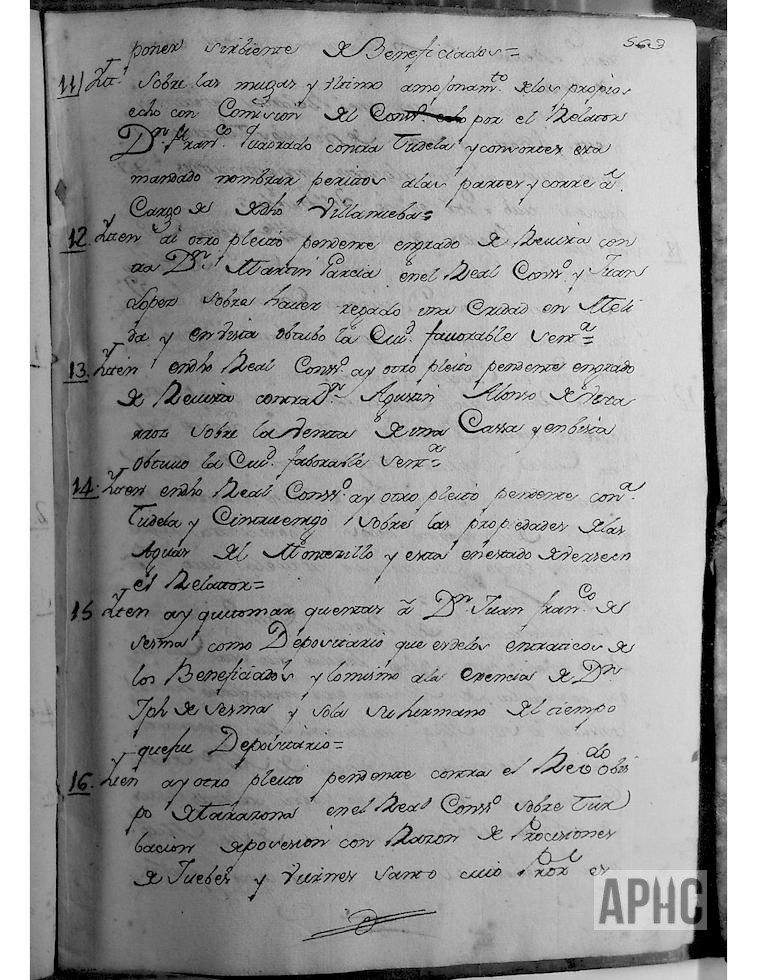 563
poner sirbiente de Beneficiados=
11) Ytt. sobre las mugas y vltimo amojonam.to delos propios
echo con Comision del Cons.o echo por el Relator
D.n Fran.co Quadrado contra Tudela y consortes esta
mandado nombrar peritos alas partes y corre a
Cargo de dho Villanueba=
12. Yten ai otro pleito pendente engrado de Revista con
tra D.n Martin Garcia enel Real Cons.o y Juan
Lopez sobre haver regado una Eredad en Meli
da y en vista obtubo la Ciu.d favorable sent.a=
13. Yten endho Real Cons.o ay otro pleito pendente engrado
de Revista contra D.n Agustin Alonso de
sobre la venta de una Cassa y enbista
obtuuo la Ciu.d faborable sent.a=
14. Yten endho Real Cons.o ay otro pleito pendente con.a
Tudela y Cintruenigo sobre las propiedades delas
Aguas del Monterillo y esta enestado deverse en
el Relator=
15 Yten ay quetomar quentas a D.n Juan Fran.co de
sesma como Depositario que es delos entraticos de
los Beneficiados y lomismo ala erencia de D.n
Jph de sesma y sola su hermano del tiempo
quefue Depositario=
16. Yten ay otro pleito pendente contra el Rev.do Obis
po de Tarazona en el Real Cons.o sobre Tur
bacion deposesion con Razon de Procisiones
de Juebes y viernes santo cuio Pror es
APHC